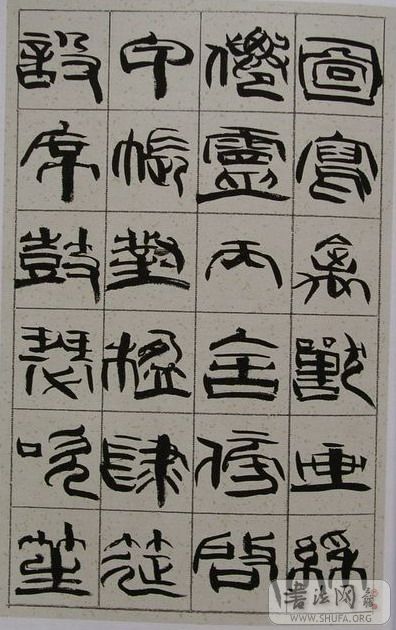 圖寫禽獸畫綵
僊靈丙舍傍啓
甲帳對楹肆筵
設席鼓瑟吹笙
書法网
WWW.SHUFA.ORG